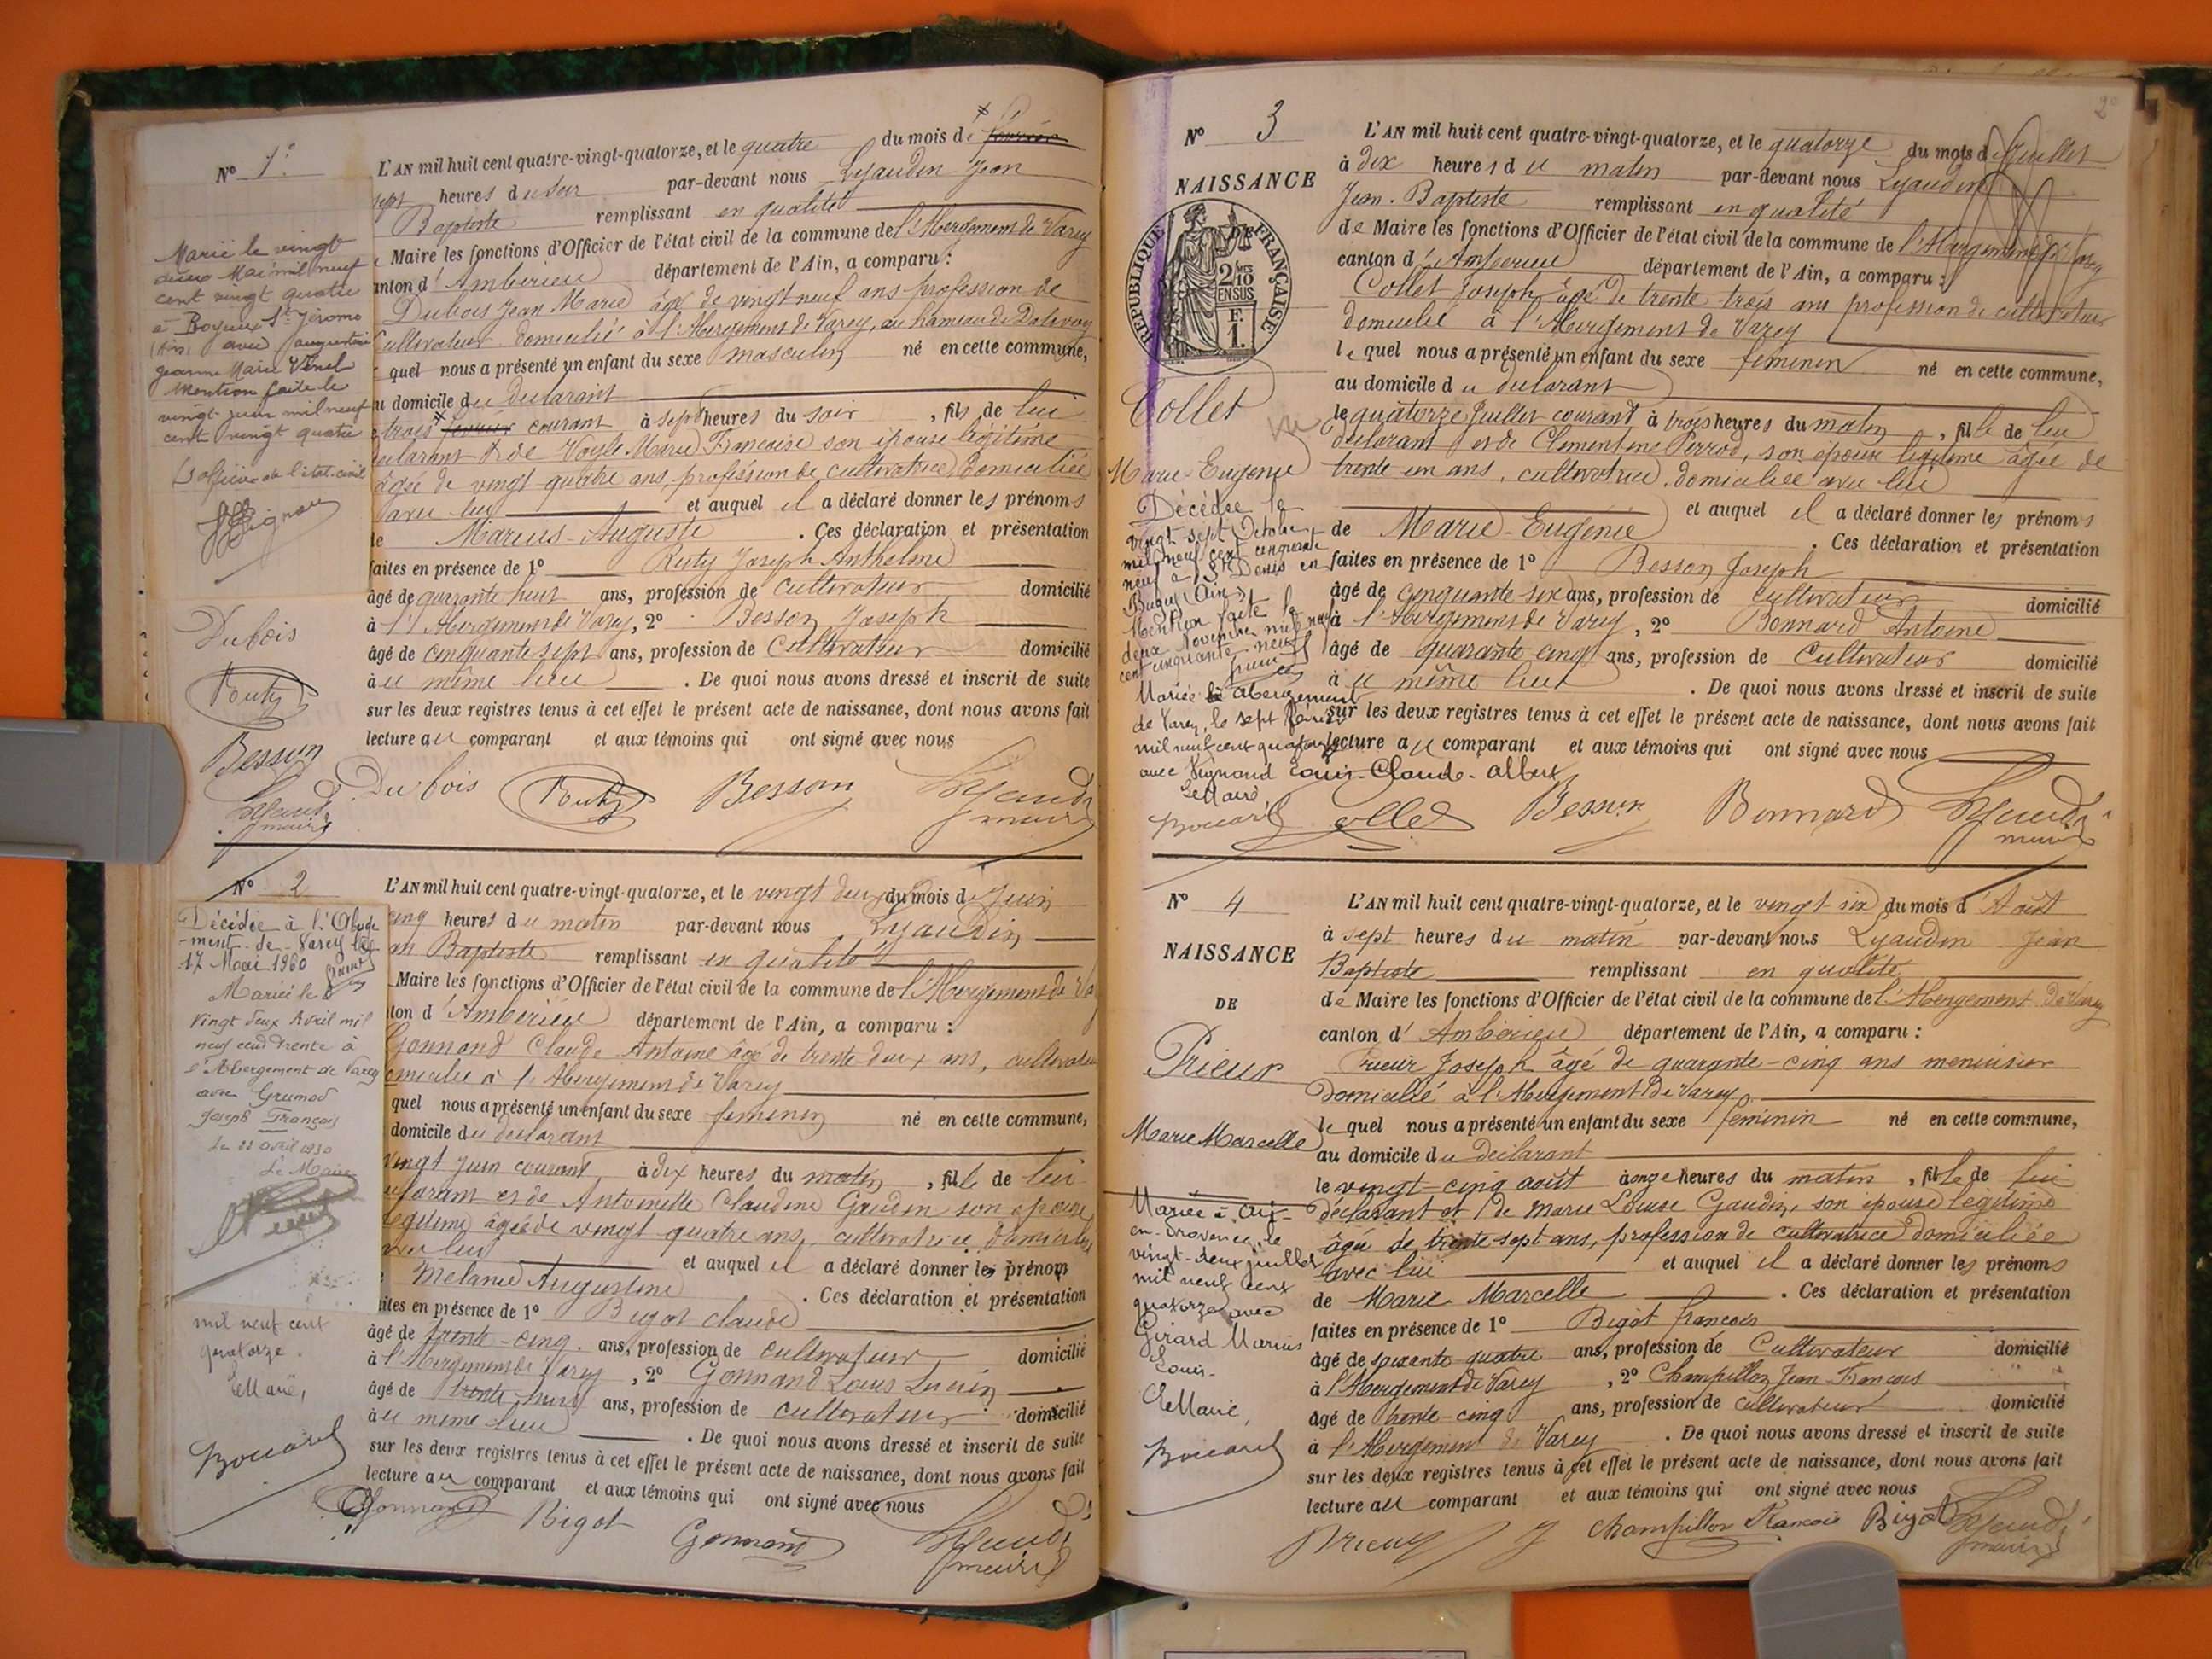 Nº 1º
L'AN mil huit cent quatre-vingt-quatorze, et le quatre du mois de février
sept heures du soir par-devant nous Lyaudin Jean
Baptiste remplissant en qualité
Maire les fonctions d'Officier de l'état civil de la commune de l'Abergement de Varey
anton d'Ambérieu département de l'Ain, a comparu :
Dubois Jean Marie âgé de vingt neuf ans profession de
Cultivateur domicilié à l'Abergement de Varey, au hameau de
quel nous a présenté un enfant du sexe masculin né en cette commune,
u domicile du déclarant
trois février courant à sept heures du soir, fils de lui
déclarant & de Marie Françoise son épouse légitime
âgée de vingt quatre ans, profession de cultivatrice, domiciliée
avec lui et auquel il a déclaré donner les prénoms
de Marius-Auguste. Ces déclaration et présentation
faites en présence de 1º Ruty Joseph Anthelme
âgé de quarante huit ans, profession de cultivateur domicilié
à l'Abergement de Varey, 2º Besson Joseph
âgé de cinquante sept ans, profession de Cultivateur domicilié
au même lieu. De quoi nous avons dressé et inscrit de suite
sur les deux registres tenus à cet effet le présent acte de naissance, dont nous avons fait
lecture au comparant et aux témoins qui ont signé avec nous
Dubois Besson
maire
Marié le vingt
deux Mai mil neuf
cent vingt quatre
à Boyeux St Jérome
(Ain) avec Augustine
Jeanne Marie
Mention faite le
vingt juin mil neuf
cent vingt quatre
L'officier de l'état-civil
Dubois
Besson
maire
Nº 2
L'AN mil huit cent quatre-vingt-quatorze, et le vingt deux du mois de Juin
cinq heures du matin par-devant nous Lyaudin
an Baptiste remplissant en qualité
Maire les fonctions d'Officier de l'état civil de la commune de l'Abergement de Va
ton d'Ambérieu département de l'Ain, a comparu :
Gonnand Claude Antoine âgé de trente deux ans, cultivateur
omicilié à l'Abergement de Varey
quel nous a présenté un enfant du sexe féminin né en cette commune,
domicile du déclarant
vingt juin courant à dix heures du matin, fille de lui
déclarant et de Antoinette Claudine Gaudin son épouse
légitime âgée de vingt quatre ans, cultivatrice domiciliée
avec lui et auquel il a déclaré donner les prénoms
Mélanie Augustine. Ces déclaration et présentation
aites en présence de 1º Bigot Claude
âgé de trente-cinq ans, profession de cultivateur domicilié
à l'Abergement de Varey, 2º Gonnand Louis Lucien
âgé de trente huit ans, profession de cultivateur domicilié
au même lieu. De quoi nous avons dressé et inscrit de suite
sur les deux registres tenus à cet effet le présent acte de naissance, dont nous avons fait
lecture au comparant et aux témoins qui ont signé avec nous
Gonnand Bigot Gonnand
maire
Décédée à l'Aberge
-ment-de-Varey le
17 Mai 1960
Mariée le
vingt deux Avril mil
neuf cent trente à
l'Abergement de Varey
avec Grumod
Joseph François
Le 22 avril 1930
Le Maire
mil neuf cent
quatorze.
Le Maire,
Bouard
2º
Nº 3
NAISSANCE
RÉPUBLIQUE FRANÇAISE
2/10 EN SUS
F. 1.
Collet
Marie-Eugénie
L'AN mil huit cent quatre-vingt-quatorze, et le quatorze du mois de Juillet
à dix heures du matin par-devant nous Lyaudin
Jean-Baptiste remplissant en qualité
de Maire les fonctions d'Officier de l'état civil de la commune de l'Abergement de Varey
canton d'Ambérieu département de l'Ain, a comparu :
Collet Joseph âgé de trente trois ans profession de cultivateur
domicilié à l'Abergement de Varey
lequel nous a présenté un enfant du sexe féminin né en cette commune,
au domicile du déclarant
le quatorze Juillet courant à trois heures du matin, fille de lui
déclarant et de Clémentine Perrod, son épouse légitime âgée de
trente un ans, cultivatrice, domiciliée avec lui
et auquel il a déclaré donner les prénoms
de Marie-Eugénie. Ces déclaration et présentation
faites en présence de 1º Besson Joseph
âgé de cinquante six ans, profession de cultivateur domicilié
à l'Abergement de Varey, 2º Bonnard Antoine
âgé de quarante cinq ans, profession de Cultivateur domicilié
à u même lieu. De quoi nous avons dressé et inscrit de suite
sur les deux registres tenus à cet effet le présent acte de naissance, dont nous avons fait
lecture au comparant et aux témoins qui ont signé avec nous
Collet Besson Bonnard
maire
Décédée le
vingt sept Octobre
mil neuf cent cinquante
neuf à St Denis en
Bugey (Ain)
Mention faite le
deux Novembre mil neuf
cent cinquante neuf
Mariée à Abergement
de Varey, le sept février
mil neuf cent quatorze
avec Vignand Louis-Claude-Albert
Le Maire,
Bouard
Nº 4
NAISSANCE
DE
Prieur
Marie Marcelle
L'AN mil huit cent quatre-vingt-quatorze, et le vingt-six du mois d'Août
à sept heures du matin par-devant nous Lyaudin Jean
Baptiste remplissant en qualité
de Maire les fonctions d'Officier de l'état civil de la commune de l'Abergement de Varey
canton d'Ambérieu département de l'Ain, a comparu :
Prieur Joseph âgé de quarante-cinq ans menuisier
Domicilié à l'Abergement de Varey
lequel nous a présenté un enfant du sexe féminin né en cette commune,
au domicile du déclarant
le vingt-cinq août à onze heures du matin, fille de lui
déclarant et de Marie Louise Gaudin, son épouse légitime
âgée de trente sept ans, profession de cultivatrice domiciliée
avec lui et auquel il a déclaré donner les prénoms
de Marie Marcelle. Ces déclaration et présentation
faites en présence de 1º Bigot François
âgé de soixante quatre ans, profession de Cultivateur domicilié
à l'Abergement de Varey, 2º Champillon Jean François
âgé de trente-cinq ans, profession de cultivateur domicilié
à l'Abergement de Varey. De quoi nous avons dressé et inscrit de suite
sur les deux registres tenus à cet effet le présent acte de naissance, dont nous avons fait
lecture au comparant et aux témoins qui ont signé avec nous
Prieur J Champillon François Bigot
maire
Mariée à Aix-
en-Provence, le
vingt-deux juillet
mil neuf cent
quatorze avec
Girard Marius
Louis.
Le Maire,
Bouard